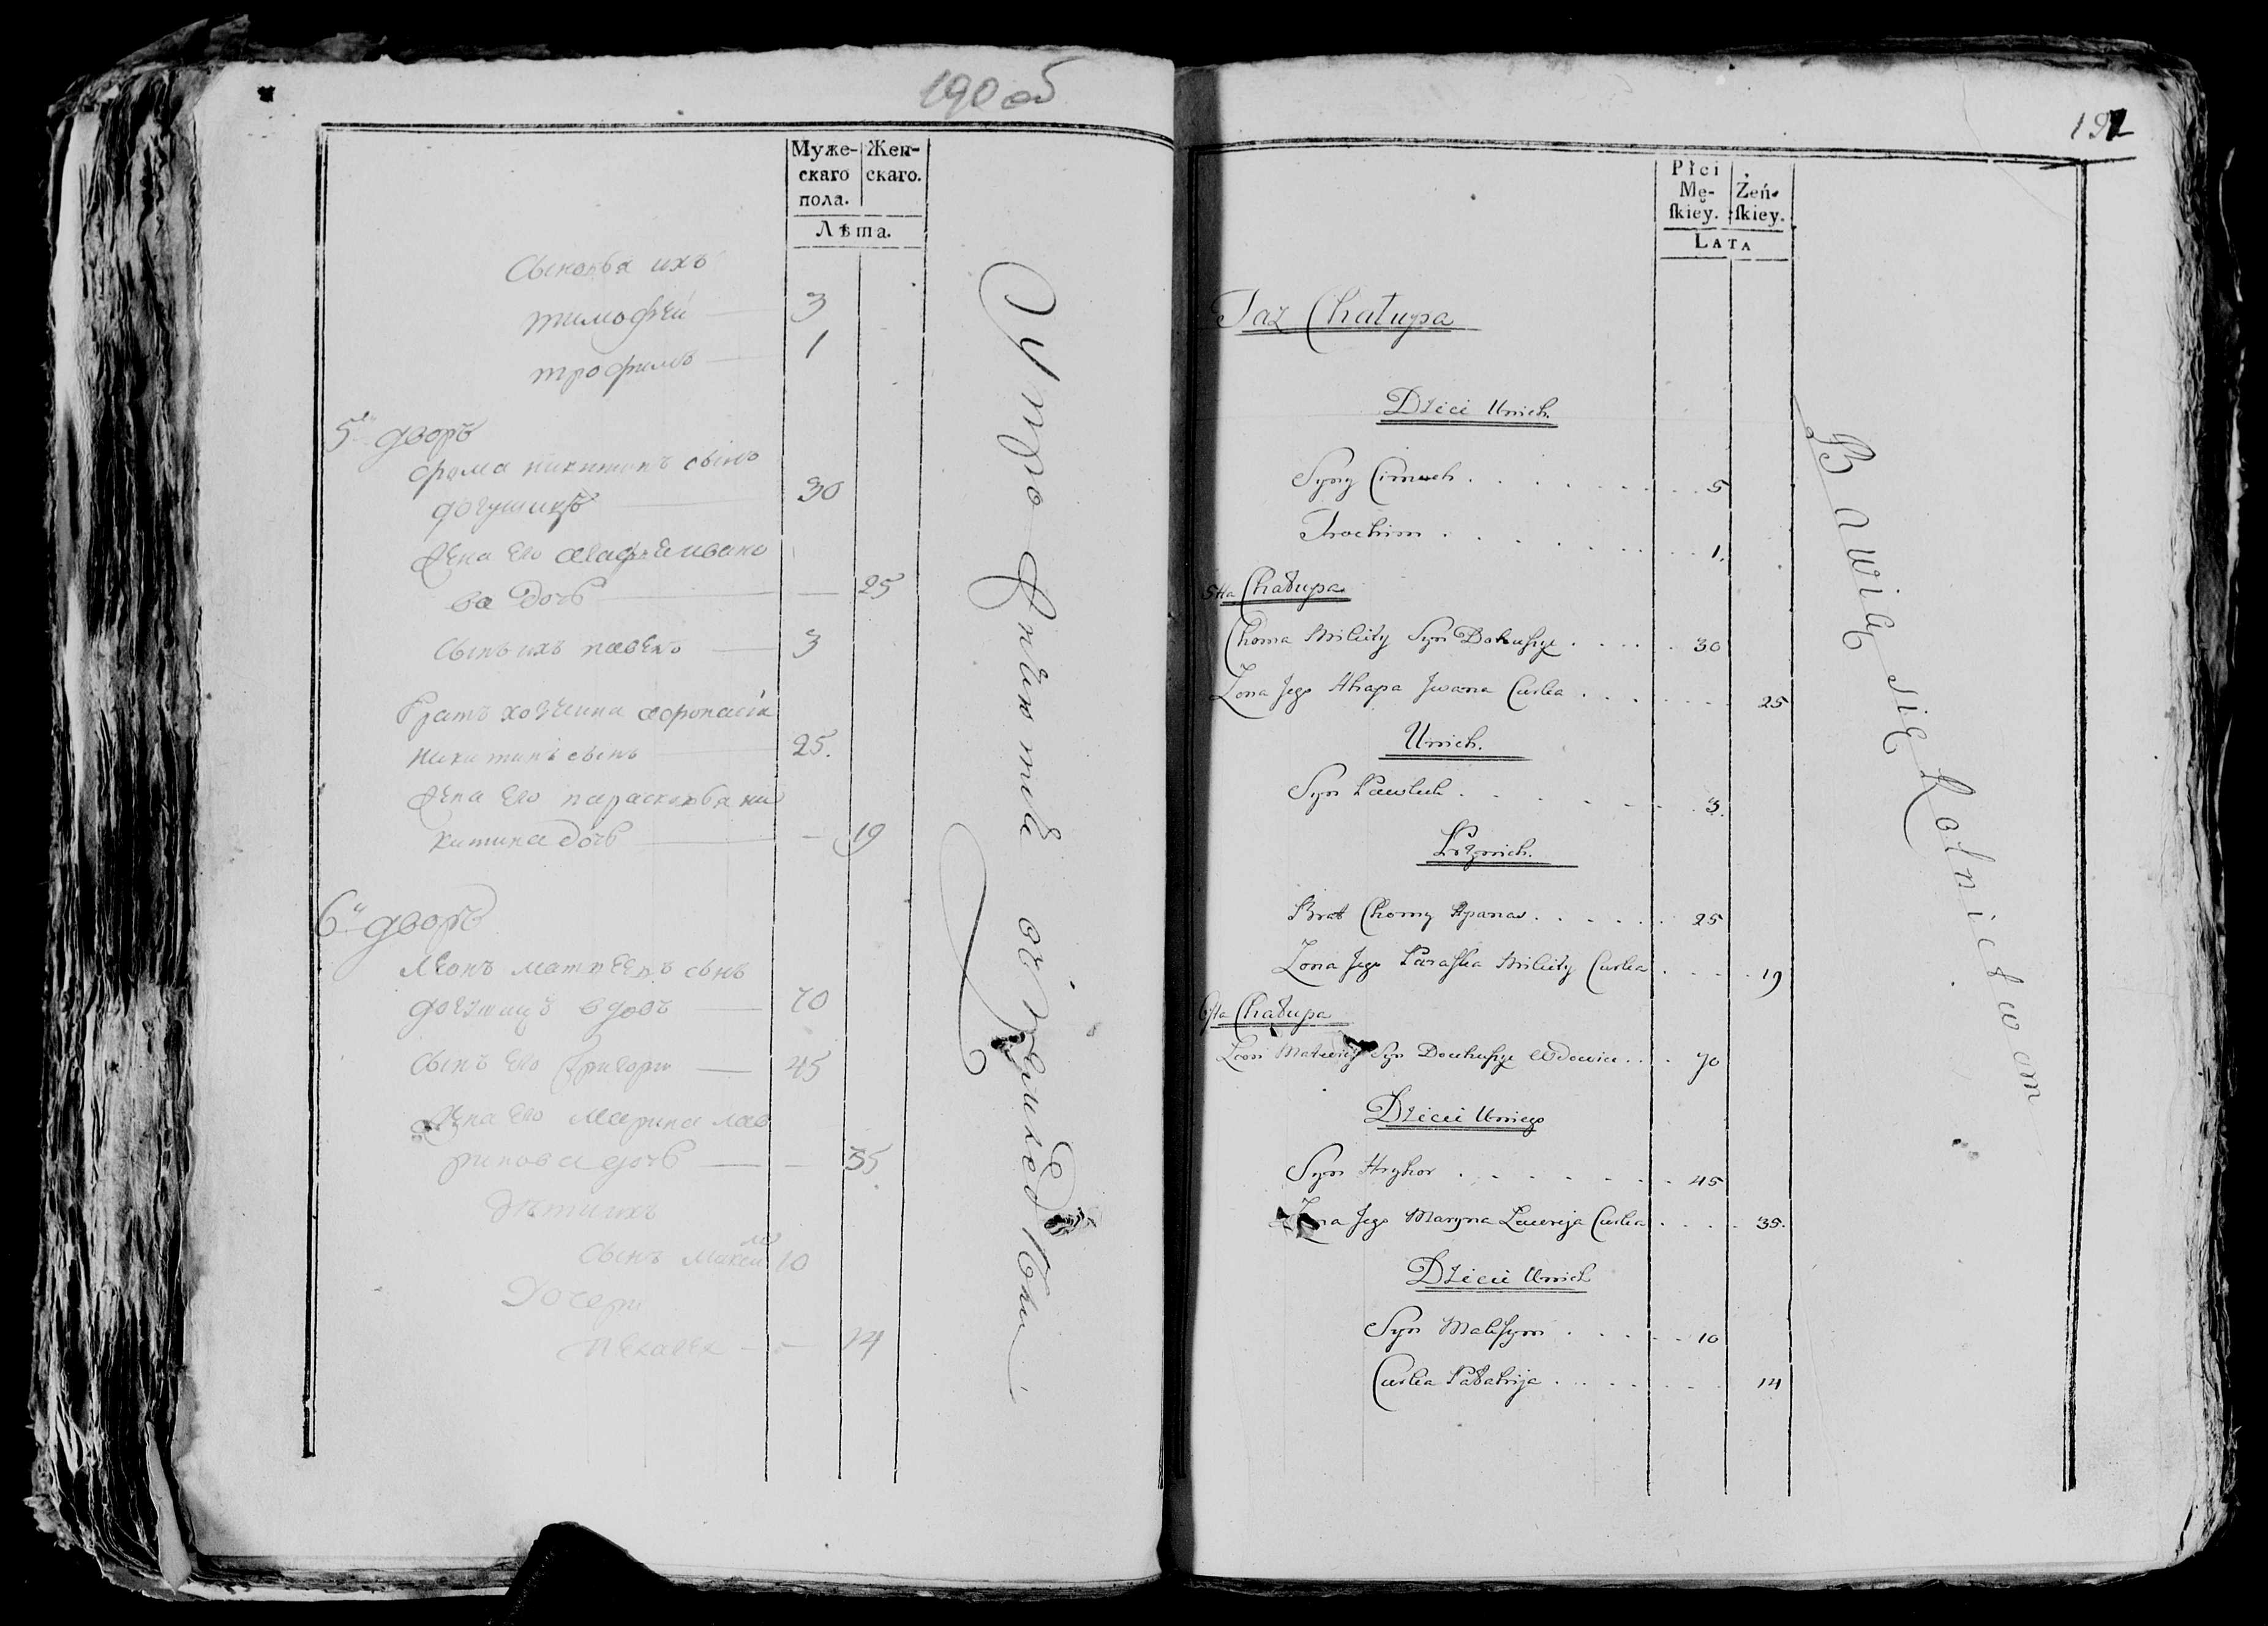 190 об
Муже- Жен-
скаго скаго.
пола.
Лѣта.
Сыновья ихъ
тимофей — 3
трофимъ — 1
5й дворъ
фома никитинъ сынъ
30
жена его агафья ивано
ва дочь — — 25
сынъ ихъ павелъ — 3
братъ хозяина афонасій
никитинъ сынъ — 25.
жена его парасковья ни
китина дочь — — 19
6й дворъ
леонъ матвеевъ сынъ
вдовъ — 70
сынъ его григори — 45
жена его марина лав
ринова дочь — — 35
дѣти ихъ
сынъ максимъ 10
Дочери
пелагея — — 14
191
Płci
Mę- Żeń-
ſkiey. ſkiey.
LATA
Taż Chałupa
Dzieci Unich.
Syny Cimoch . . . . . . . . 5
Trochim . . . . . . . . 1.
5ta Chałupa
Choma Mikity Syn . . . . . 30
Żona Jego Ahapa Jwana Curka . . . . . . . 25
Unich.
Syn Pawluk . . . . . . . 3.
Przynich.
Brat Chomy Apanas . . . . . . 25
Żona Jego Paraſka Mikity Curka . . . . . 19
6ſta Chałupa
Leon Matwieja Syn wdowiec . . . 70
Dzieci Uniego
Syn Hryhor . . . . . . . . 45
Żona Jego Maryna Ławreja Curka . . . . 35.
Dzieci Unich
Syn Makſym . . . . . . 10
Curka Pałahija . . . . . . . . 14
Bawiłą się Rolnictwem